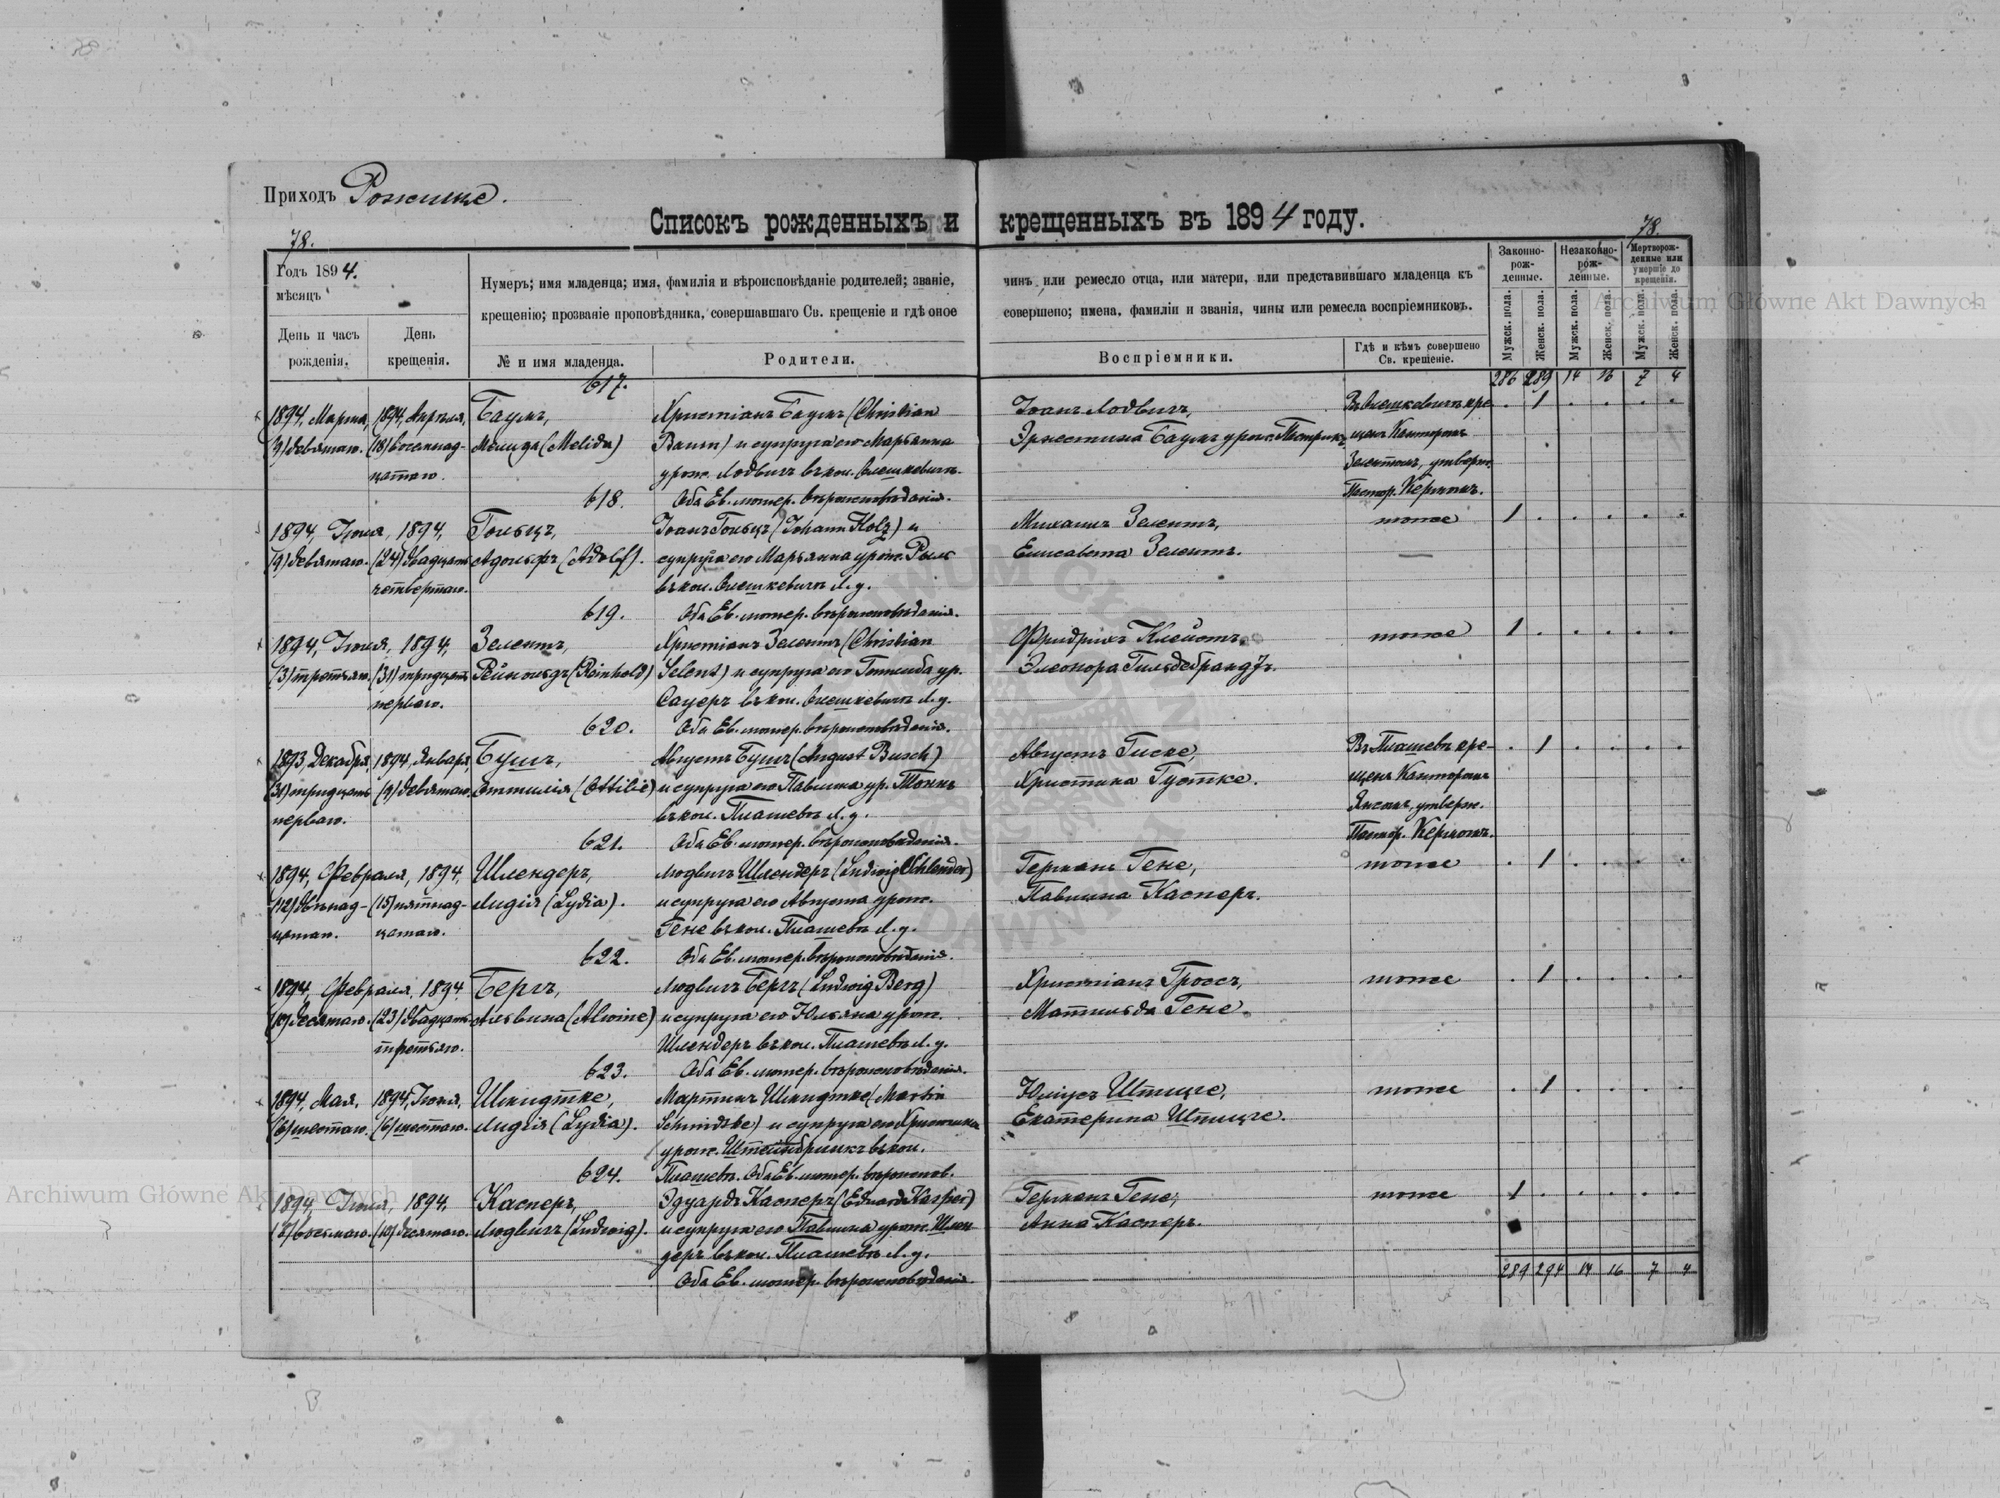 Приходъ Рожище.
Списокъ рожденныхъ и крещенныхъ въ 1894 году.
78.
78.
Годъ 1894.
мѣсяцъ
День и часъ рожденія.
День крещенія.
Нумеръ; имя младенца; имя, фамилія и вѣроисповѣданіе родителей; званіе,
крещенію; прозваніе проповѣдника, совершавшаго Св. крещеніе и гдѣ оное
№ и имя младенца.
Родители.
чинъ или ремесло отца, или матери, или представившаго младенца къ
совершено; имена, фамиліи и званія, чины или ремесла воспріемниковъ.
Воспріемники.
Гдѣ и кѣмъ совершено
Св. крещеніе.
Законно-
рож-
денные.
Незаконно-
рож-
денные.
Мертворож-
денные или
умершіе до
крещенія.
Мужск. пола.
Женск. пола.
Мужск. пола.
Женск. пола.
Мужск. пола.
Женск. пола.
286 289 14 16 7 4
617.
1894, Марта, 1894, Апрѣля, Баумъ, Христіанъ Баумъ (Christian Іоанъ Лодвигъ,
(9) девятаго. (18) восемнад- Мелида (Melida) Baum) и супруга его Марьянна Эрнестина Баумъ урож. щенъ Канторомъ
цатаго. урож. Лодвигъ въ кол. Олешкевичъ. Зелентомъ, утверж.
618. Оба Ев. лютер. вѣроисповѣданія. Пастор. Кернъ
1894, Іюля, 1894, Гольцъ, Іоанъ Гольцъ (Johann Holz) и Михаилъ Зелентъ, тоже 1
(9) девятаго. (24) двадцать Адольфъ (Adolf). супруга его Марьянна урож. Елисавета Зелентъ.
четвертаго. въ кол. Олешкевичъ Л. у.
619. Оба Ев. лютер. вѣроисповѣданія.
1894, Іюля, 1894, Зелентъ, Христіанъ Зелентъ (Christian Фридрихъ тоже 1
(3) третьяго. (31) тридцать Рейнольдъ (Reinhold) Selent) и супруга его Готлиба ур. Элеонора Гильдебрандъ.
перваго. Сауеръ въ кол. Олешкевичъ Л. у.
620. Оба Ев. лютер. вѣроисповѣданія.
1893, Декабря, 1894, Января, Бушъ, Августъ Бушъ (August Busch) Августъ Гиске, Въ Плашевѣ кре- 1
(31) тридцать (9) девятаго. Оттилія (Ottilie) и супруга его Павлина ур. Тоннъ Христина Густке. щенъ Канторомъ
перваго. въ кол. Плашевъ Л. у. утверж.
621. Оба Ев. лютер. вѣроисповѣданія. Пастор.
1894, Февраля, 1894, Шлендеръ, Людвигъ Шлендеръ (Ludwig Schlender) Германъ Гене, тоже 1
(12) двѣнад- (15) пятнад- Лидія (Lydia). и супруга его Августа урож. Павлина Касперъ.
цатаго. цатаго. Гене въ кол. Плашевъ Л. у.
622. Оба Ев. лютер. вѣроисповѣданія.
1894, Февраля, 1894, Бергъ, Людвигъ Бергъ (Ludwig Berg) Христіанъ Гроссъ, тоже 1
(10) десятаго. (23) двадцать Альвина (Alwine) и супруга его Юльяна урож. Матильда Гене.
третьяго. Шлендеръ въ кол. Плашевъ Л. у.
623. Оба Ев. лютер. вѣроисповѣданія.
1894, Мая, 1894, Іюля, Шмидтке, Мартинъ Шмидтке (Martin Юліусъ Штицге, тоже 1
(6) шестаго. (6) шестаго. Лидія (Lydia). Schmidtke) и супруга его Христина Екатерина Штицге.
урож. Штейнбринкъ въ кол.
624. Плашевъ. Оба Ев. лютер. вѣроисповѣд.
1894, Іюля, 1894, Касперъ, Эдуардъ Касперъ (Eduard Kasper) Германъ Гене, тоже 1
(8) восьмаго. (10) десятаго. Людвигъ (Ludwig). и супруга его Павлина урож. Шлен- Анна Касперъ.
деръ въ кол. Плашевъ Л. у.
Оба Ев. лютер. вѣроисповѣданія.
289 294 14 16 7 4
Archiwum Główne Akt Dawnych
Archiwum Główne Akt Dawnych